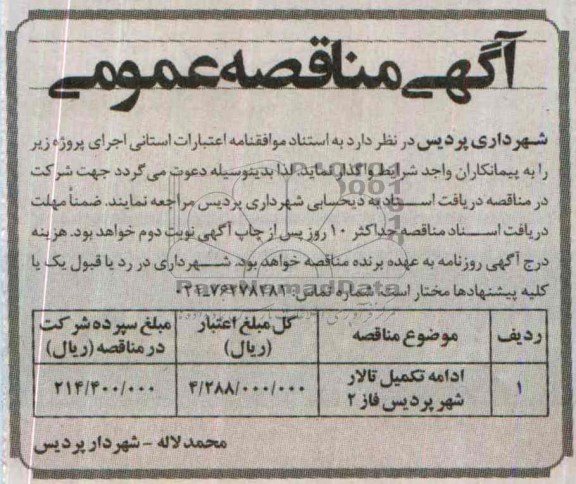 آگهی مناقصه عمومی
شهرداری پردیس در نظر دارد به استناد موافقتنامه اعتبارات استانی اجرای پروژه زیر
را به پیمانکاران واجد شرایط واگذار نماید. لذا بدینوسیله دعوت می گردد جهت شرکت
در مناقصه دریافت اسناد به ذیحسابی شهرداری پردیس مراجعه نمایند. ضمناً مهلت
دریافت اسناد مناقصه حداکثر ۱۰ روز پس از چاپ آگهی نوبت دوم خواهد بود. هزینه
درج آگهی روزنامه به عهده برنده مناقصه خواهد بود. شهرداری در رد یا قبول یک یا
کلیه پیشنهادها مختار است. شماره تماس:
ParsNamadData
ردیف موضوع مناقصه کل مبلغ اعتبار (ریال) مبلغ سپرده شرکت در مناقصه (ریال)
۱ ادامه تکمیل تالار شهر پردیس فاز ۲ ۴/۲۸۸/۰۰۰/۰۰۰ ۲۱۴/۴۰۰/۰۰۰
محمد لاله - شهردار پردیس